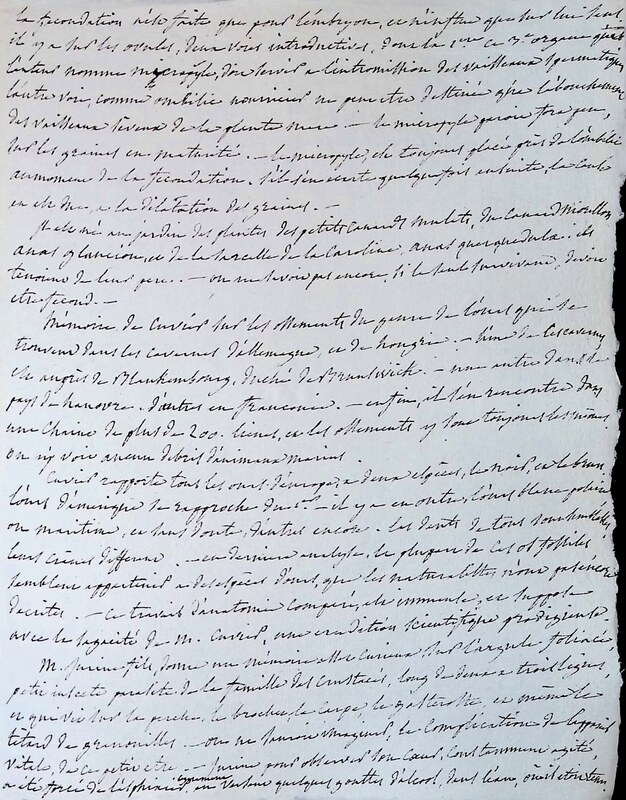 la fecondation n'est faite que pour l'embryon, et n'influe que sur lui seul.
il y a sur les ovules, deux voies introductives, dont la 1ere et 3e organe que
l'auteur nomme micropyle, doit servir a l'intromission des vaisseaux spermatiques
l'autre voie, comme ombilic nourricier ne peut etre destinée que l'abouchement
des vaisseaux seveux de la plante mere — le micropyle paroit fort peu,
sur les graines en maturité. — le micropyle, est toujours placé près de l'ombilic
au moment de la fecondation. s'il s'en ecarte quelquefois ensuite, la cause
en est due, a la dilatation des graines. —
Il est né au jardin des plantes des petits canards mulets, du canard
anas glaucion, et de la sarcelle de la Caroline, anas querquedula. ils
tenoient de leur pere. — on ne savoit pas encore, si le seul survivant, devoit
etre fécond. —
Mémoire de Cuvier sur les ossements du genre de l'ours qui se
trouvent dans les cavernes d'allemagne, et de hongrie. — l'une de ces cavernes
est auprès de Blankembourg, duché de Brunswick. — une autre dans le
pays de hanovre. d'autres en franconie. — enfin, il s'en rencontre dans
une chaine de plus de 200. lieues, et les ossements y sont toujours les mêmes
on n'y voit aucun debris d'animaux marins.
Cuvier rapporte tous les ours d'europe, a deux espèces, le noir, et le brun
l'ours d'amérique se rapproche du 1er — il y a en outre, l'ours blanc polaire
ou maritime, et sans doute, d'autres encore. les dents de tous sont semblables,
leurs crânes different. — en derniere analyse, la plupart de ces os fossiles
semblent appartenir a des espèces d'ours, que les naturalistes n'ont pas encore
decrites. — ce travail d'anatomie comparée, est immense, et suppose
avec la sagacité de M. Cuvier, une erudition scientifique prodigieuse
M. Jurine fils, donne un mémoire assez curieux sur l'argule foliacé,
petit insecte parasite de la famille des crustacés, long de deux a trois lignes,
et qui vit sur la perche, le brochet, la carpe, le gasteroste, et même le
têtard de grenouilles. — on ne sauroit imaginer, la complication de l'appareil
vital de ce petit etre. — Jurine pour observer son cœur, constamment agité
a été forcé de l'enivrer, en versant quelques gouttes d'alcool, dans l'eau, où il etoit tenu